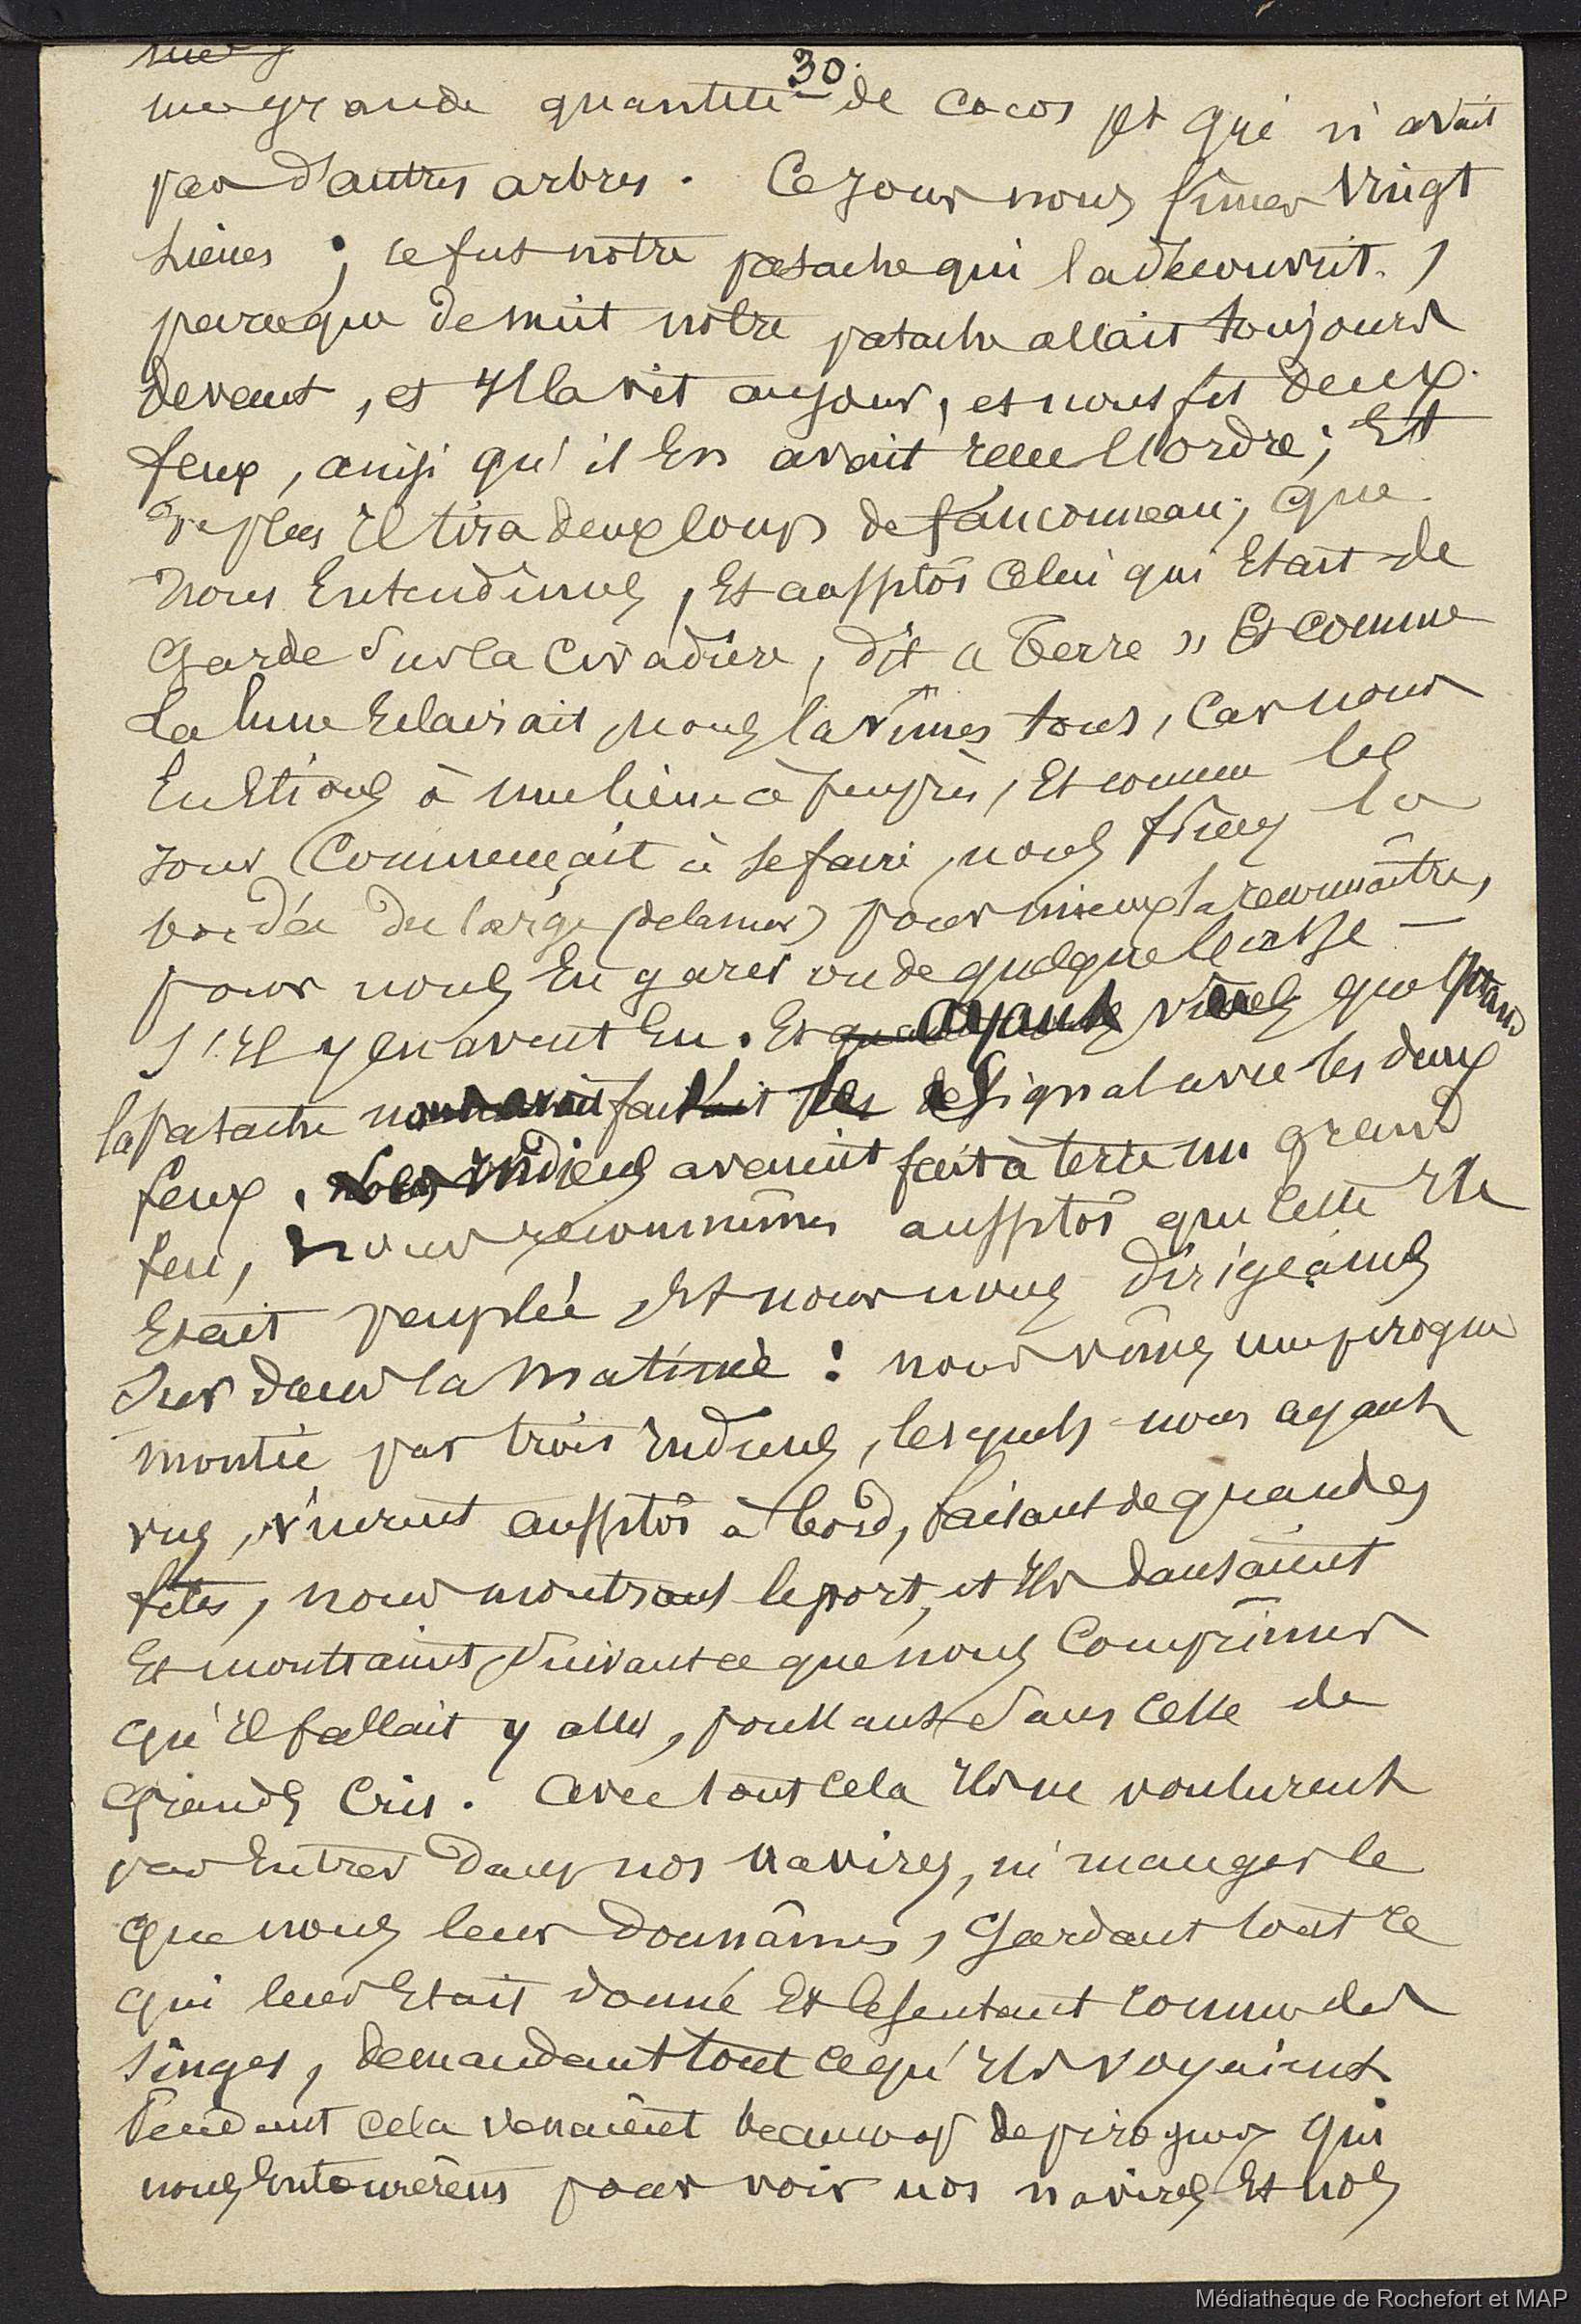 30.
une grande quantité de cocos et qui n'avait
pas d'autres arbres. Ce jour nous fîmes vingt
Lieues ; ce fut notre patache qui la découvrit,
parce que de nuit notre patache allait toujours
devant, et Il la vit au jour, et nous fit deux
feux, ainsi qu'il En avait reçu l'ordre ; Et
de plus Il tira deux coups de fauconneau, que
nous Entendîmes, Et aussitôt celui qui Etait de
garde sur la Civadière, dit « Terre » Et comme
la lune Eclairait, nous la vîmes tous, car nous
En Etions à une lieue à peu près, Et comme le
jour Commençait à se faire, nous fîmes la
bordée du large (de la mer) pour mieux la reconnaître,
pour nous En garer ou de quelque basse —
s'Il y en avait Eu. Et ayant vu que
la patache nous avait fait le signal avec les deux
feux. Les Indiens avaient fait à terre un grand
feu, nous reconnûmes aussitôt que cette Ile
Etait peuplée, Et nous nous dirigeâmes
sur dans la matinée : nous vîmes une pirogue
montée par trois Indiens, lesquels nous ayant
vus, vinrent aussitôt à bord, faisant de grandes
fêtes, nous montrant le port, et Ils dansaient
Et montraient suivant ce que nous Comprîmes
qu'Il fallait y aller, poussant sans cesse de
grands Cris. Avec tout cela Ils ne voulurent
pas Entrer dans nos navires, ni manger ce
que nous leur donnâmes, gardant tout ce
qui leur Etait donné Et le sentant comme des
singes, demandant tout ce qu'Ils voyaient.
Pendant cela venaient beaucoup de pirogues qui
nous Entourèrent pour voir nos navires Et nos